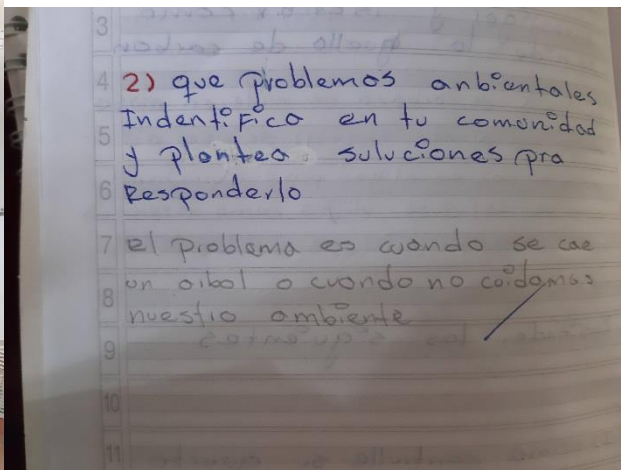 2) que problemas anbientales
Indentifica en tu comunidad
y plantea suluciones pra
Responderlo
el problema es cuando se cae
un aibol o cuando no coidamos
nuestro ambiente